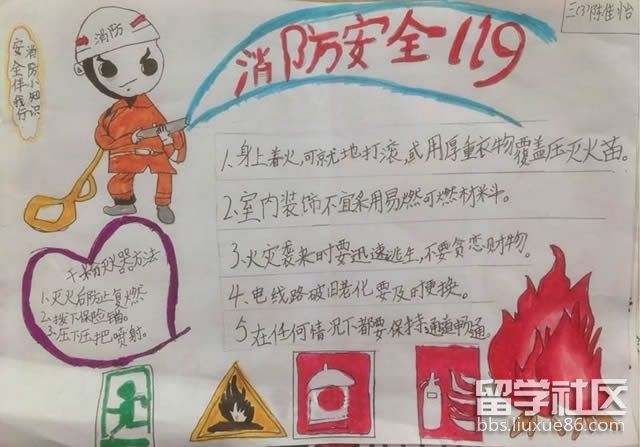 三(3)陈佳怡
消防安全119
消防
消防小知识
安全伴我行
1.身上着火,可就地打滚,或用厚重衣物覆盖压灭火苗。
2.室内装饰不宜采用易燃可燃材料。
3.火灾袭来时要迅速逃生,不要贪恋财物。
4.电线路破旧老化要及时更换。
5在任何情况下都要保持通道畅通。
干粉灭火器方法
1.灭火后防止复燃
2.拔下保险销。
3.压下压把喷射。
留学社区
bbs.liuxue86.com